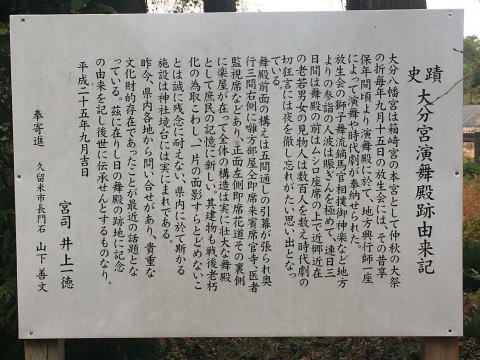 史蹟 大分宮演舞殿跡由来記
大分八幡宮は箱崎宮の本宮として仲秋の大祭
の折毎年九月十五日の放生会には、その昔享
保年間頃より演舞殿に於て、地方興行師一座
によって演舞や時代劇が奉納せられた。
放生会の獅子舞流鏑馬宮相撲御神楽など地方
よりの参詣の人波は賑ぎんを極めて、連日三
日間は舞殿の前はムシロ座席の上で近郷近在
の老若男女の見物人は数百人を数え時代劇の
切狂言には夜を徹して忘れがたい思い出となっ
ている。
舞殿前面の構えは五間通しの引幕が張られ奥
行三間右側に囃方部屋仝即席来賓席官寺医者
監視席などあり、正面左側即席花道その裏側
に楽屋が在って全体の構造は実に壮大な舞殿
として庶民の記憶に新しい其建物も戦後老朽
化の為取こわし、一片の面影すらとどめないこ
とは誠に残念に耐えない県内に於て斯かる
施設は神社境内には実にまれである。
昨今、県内各地から問い合せがあり、貴重な
文化財的存在であったことが最近の話題とな
っている。茲に在りし日の舞殿の跡地に記念
の由来を記し後世に伝承せんとするものなり。
平成二十五年九月吉日
宮司 井上一徳
奉寄進 久留米市長門石 山下善文